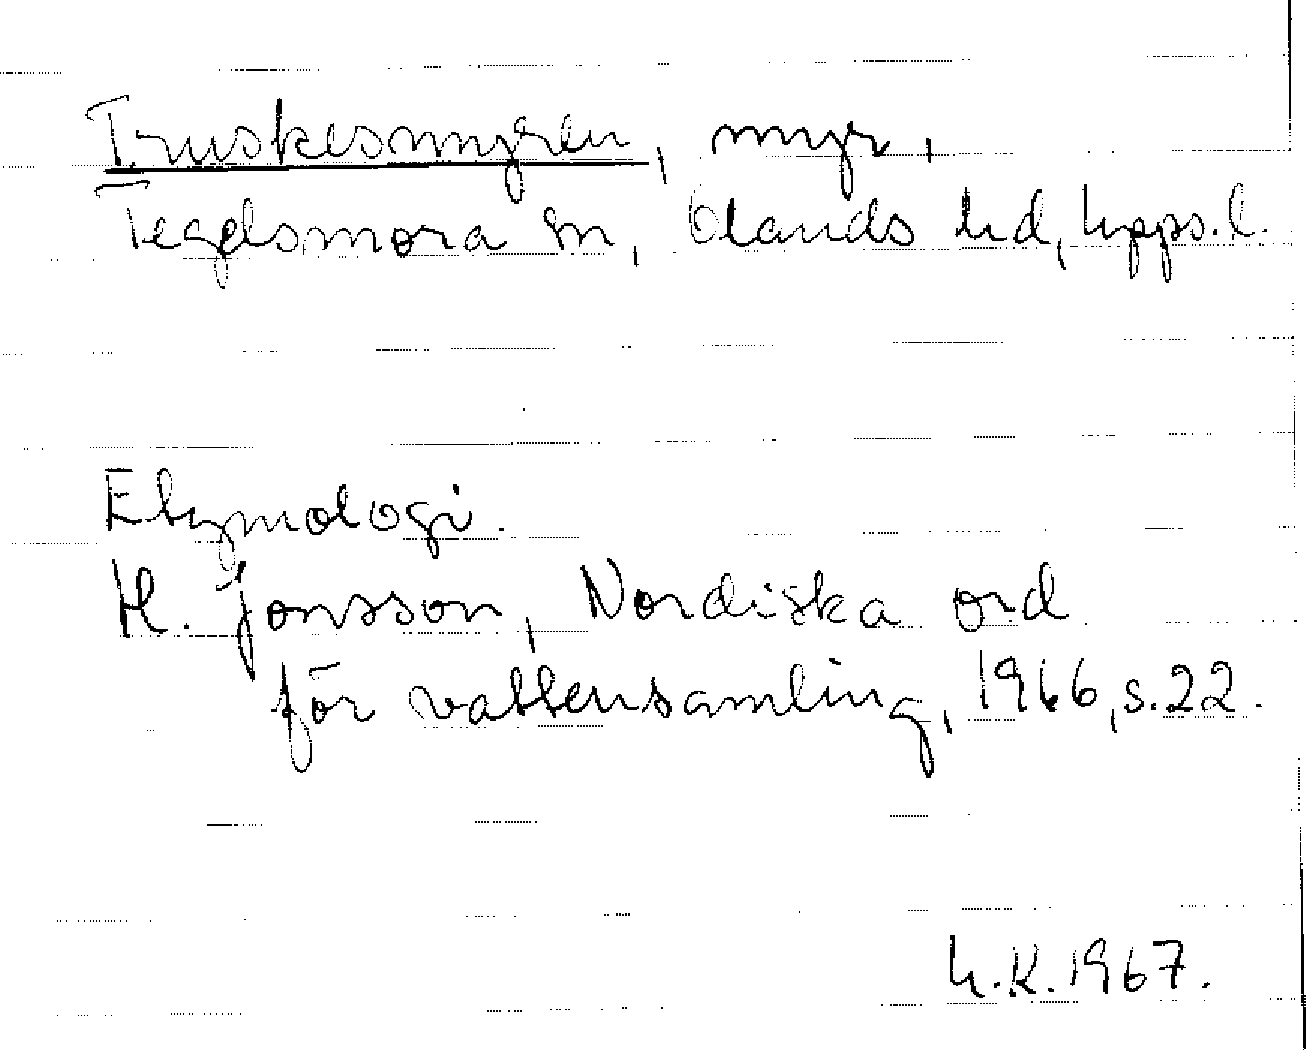 Truskesmyren, myr,
Tegelsmora sn, Olands hd, Upps. l.
Etymologi.
H. Jonsson, Nordiska ord
för vattensamling, 1966, s. 22.
U.K. 1967.